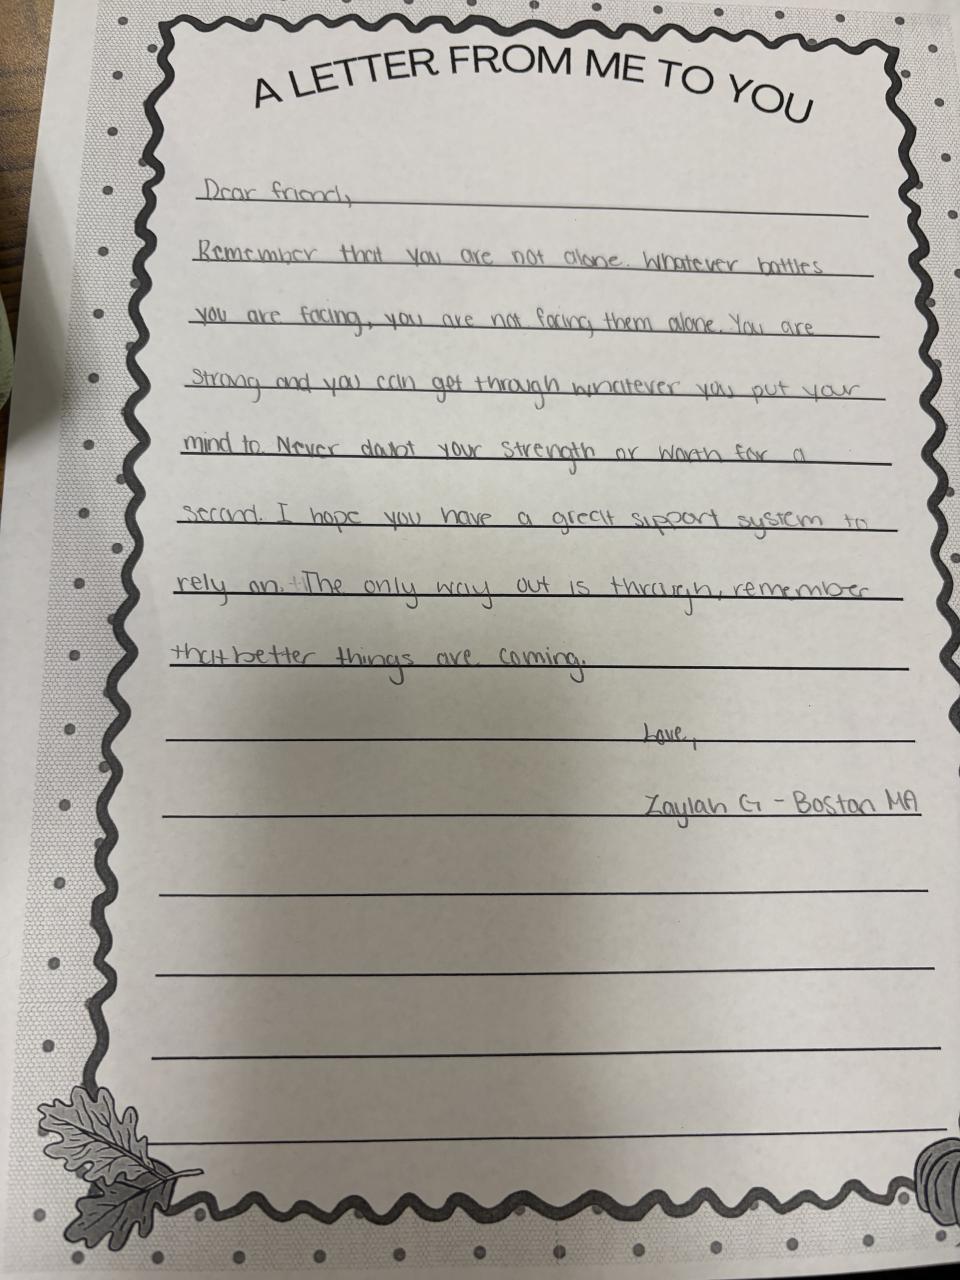 A LETTER FROM ME TO YOU
Dear friend,
Remember that you are not alone. Whatever battles
you are facing, you are not facing them alone. You are
strong and you can get through whatever you put your
mind to. Never doubt your strength or worth for a
second. I hope you have a great support system to
rely on. The only way out is through, remember
that better things are coming.
Love,
Zaylah G - Boston MA